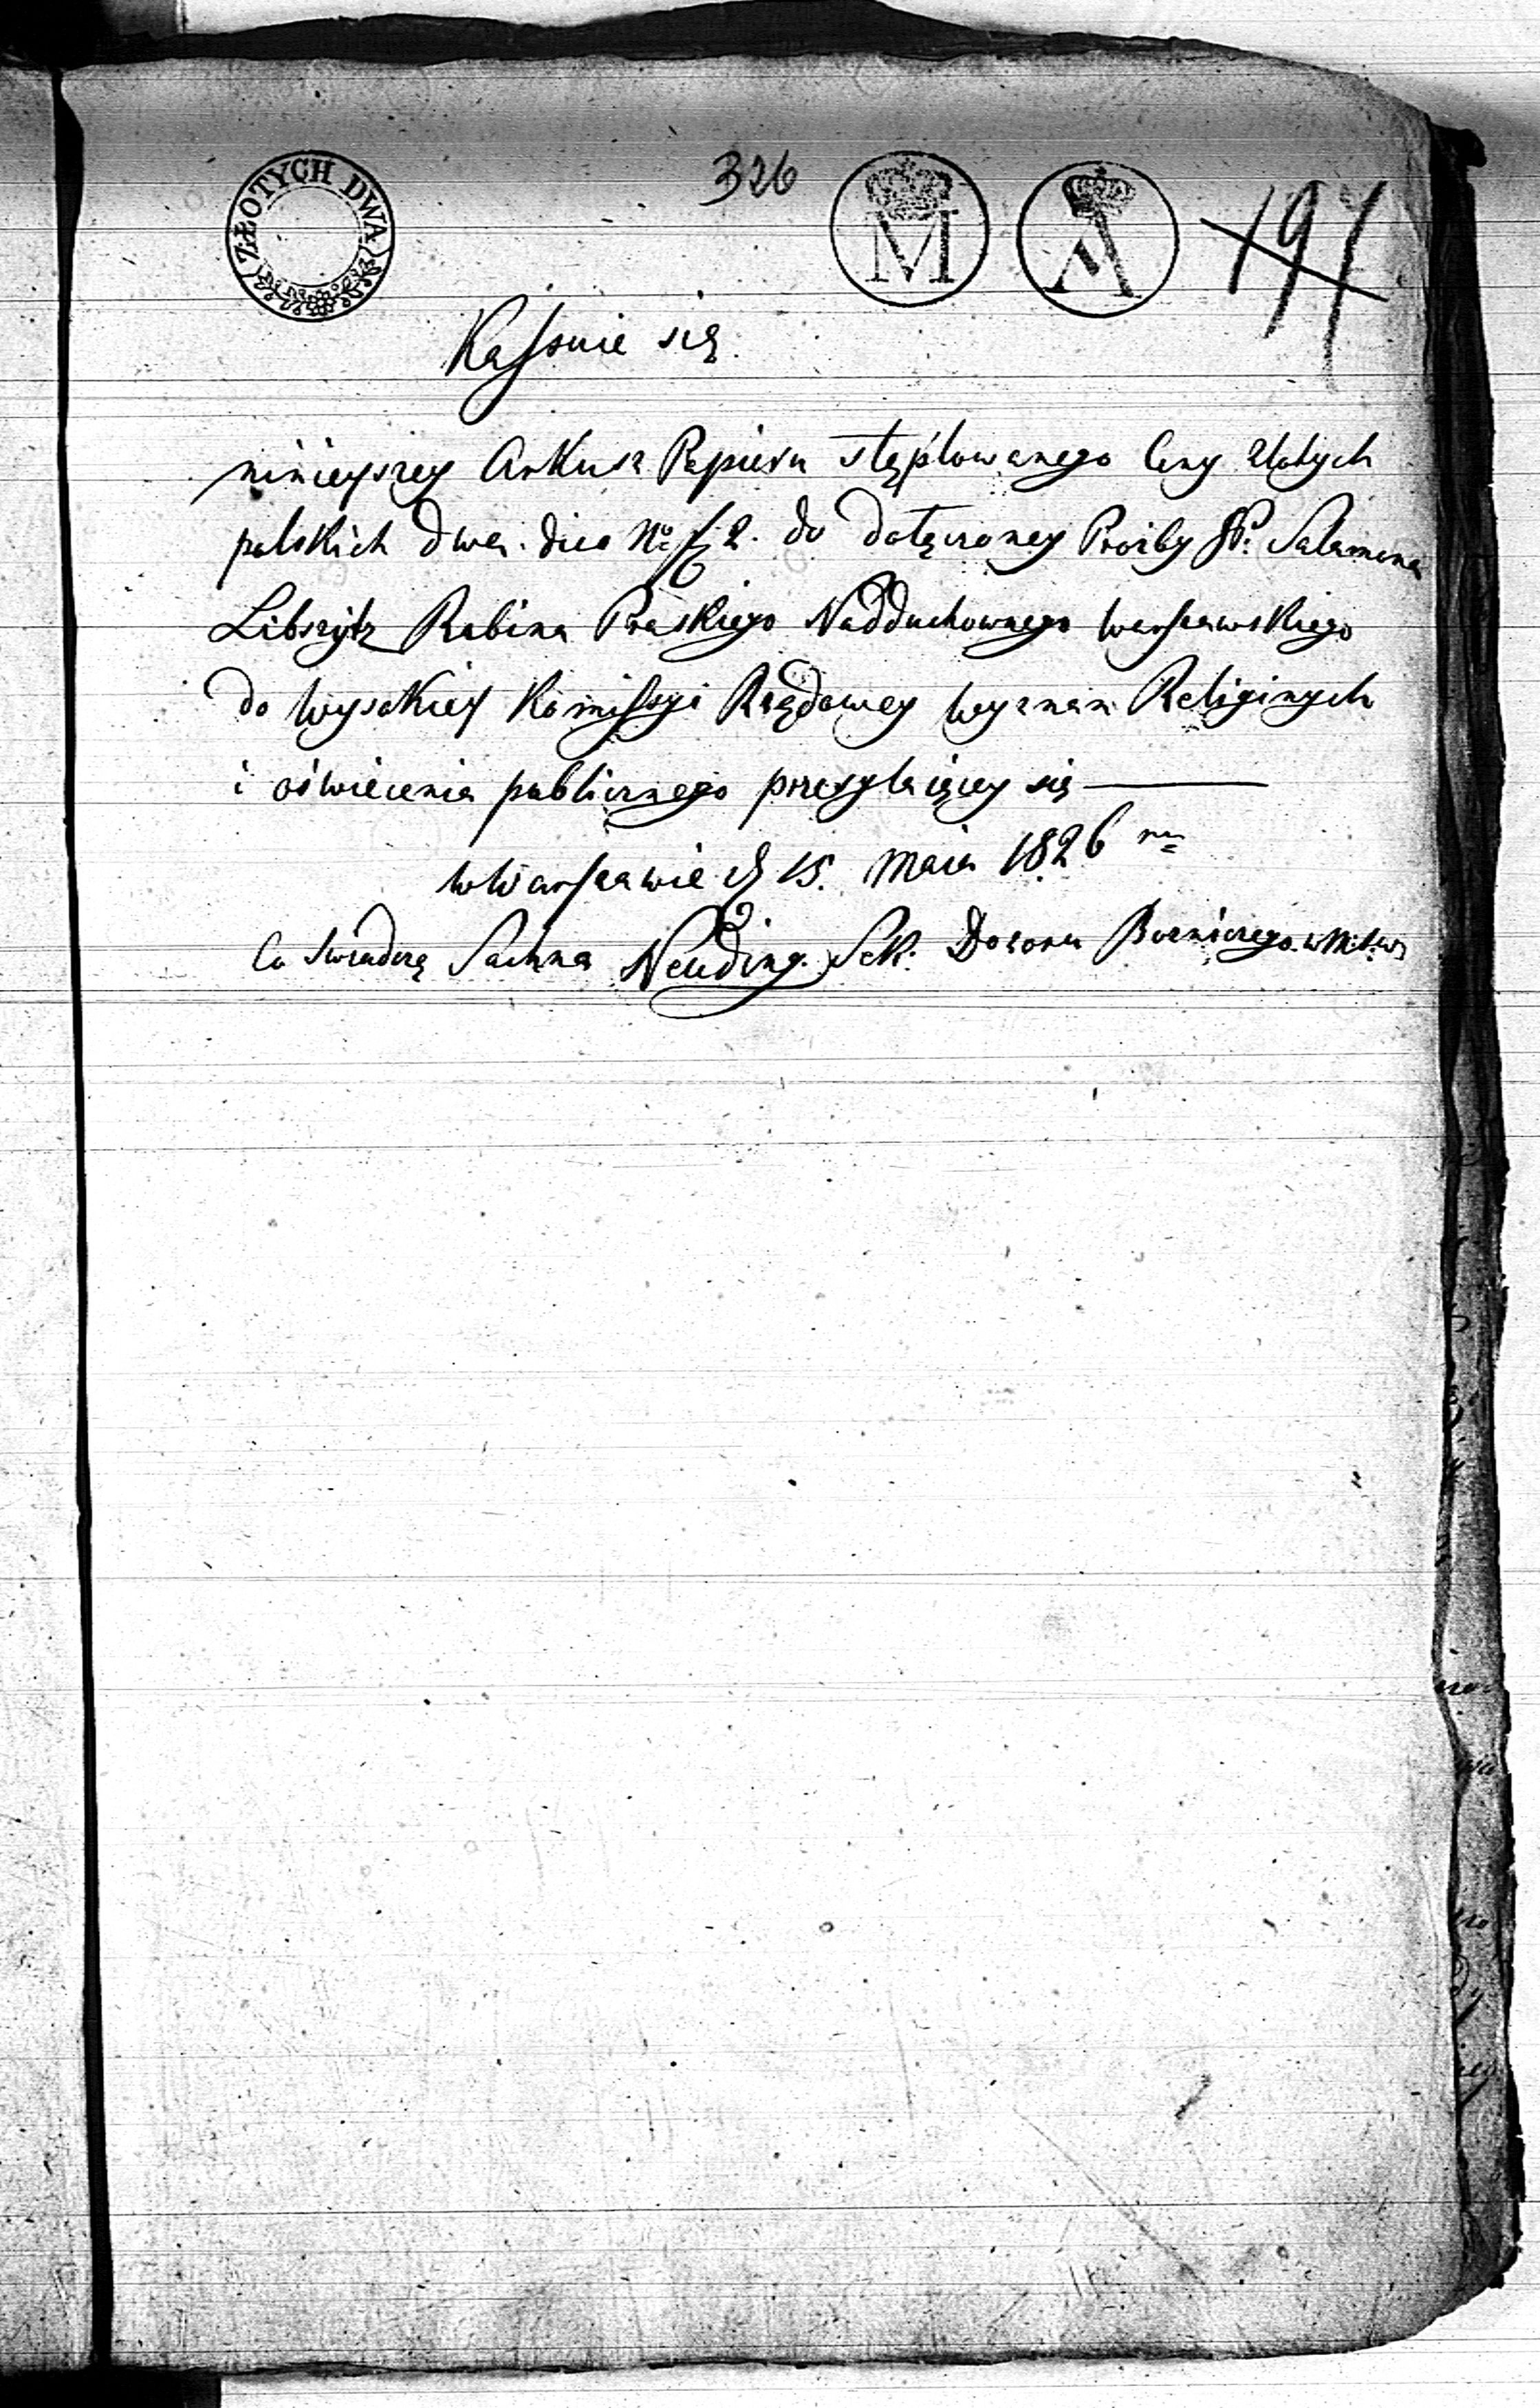 ZŁOTYCH DWA
326
M
A
191
Kassuie się
ninieyszey Arkusz Papieru stęplowanego Ceny złotych
polskich dwa. dico No 2. do dołączoney Prozby JP. Salamona
Libszytz Rabina Praskiego Nadduchownego Warszawskiego
do Wysokiey Kommissyi Rządowey Wyznan Religinych
i oświecenia publicznego przesylaiącey się
w Warszawie d 15. Maia 1826
Co swiadczą Sachna Neuding. Sek: Dozoru Bożniczego